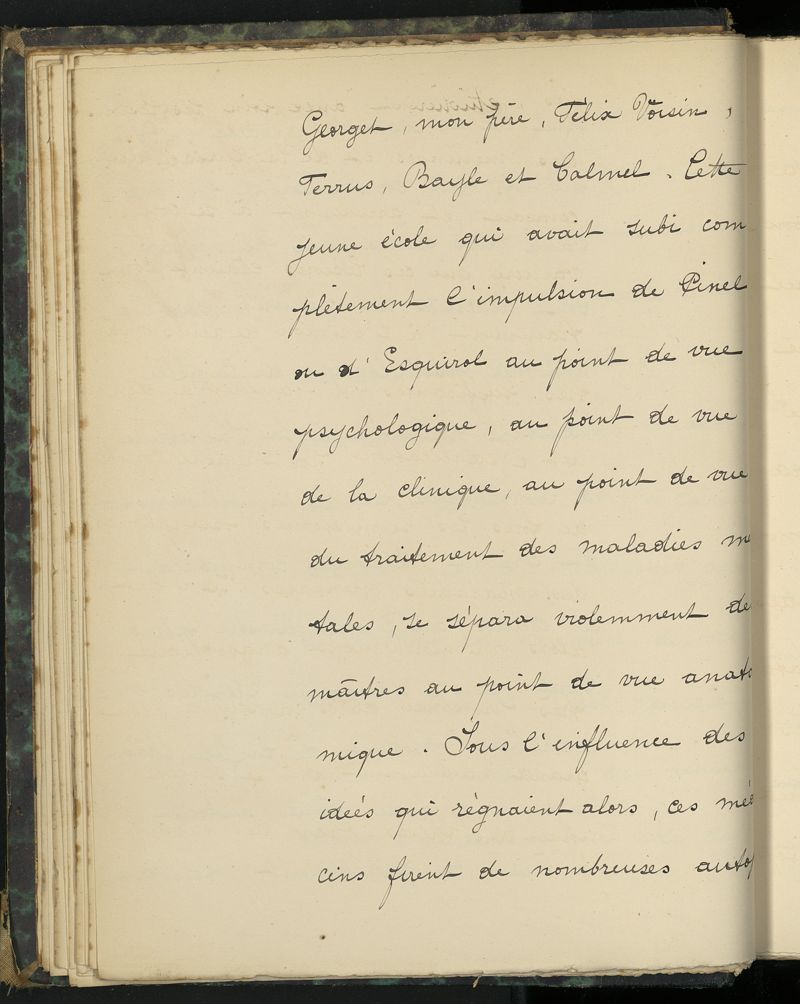 Georget, mon père, Félix Voisin,
Ferrus, Bayle et Calmel. Cette
jeune école qui avait subi com
plètement l'impulsion de Pinel
ou d'Esquirol au point de vue
psychologique, au point de vue
de la clinique, au point de vue
du traitement des maladies me
tales, se sépara violemment de
maîtres au point de vue anato
mique. Sous l'influence des
ideés qui règnaient alors, ces mé
cins firent de nombreuses autop